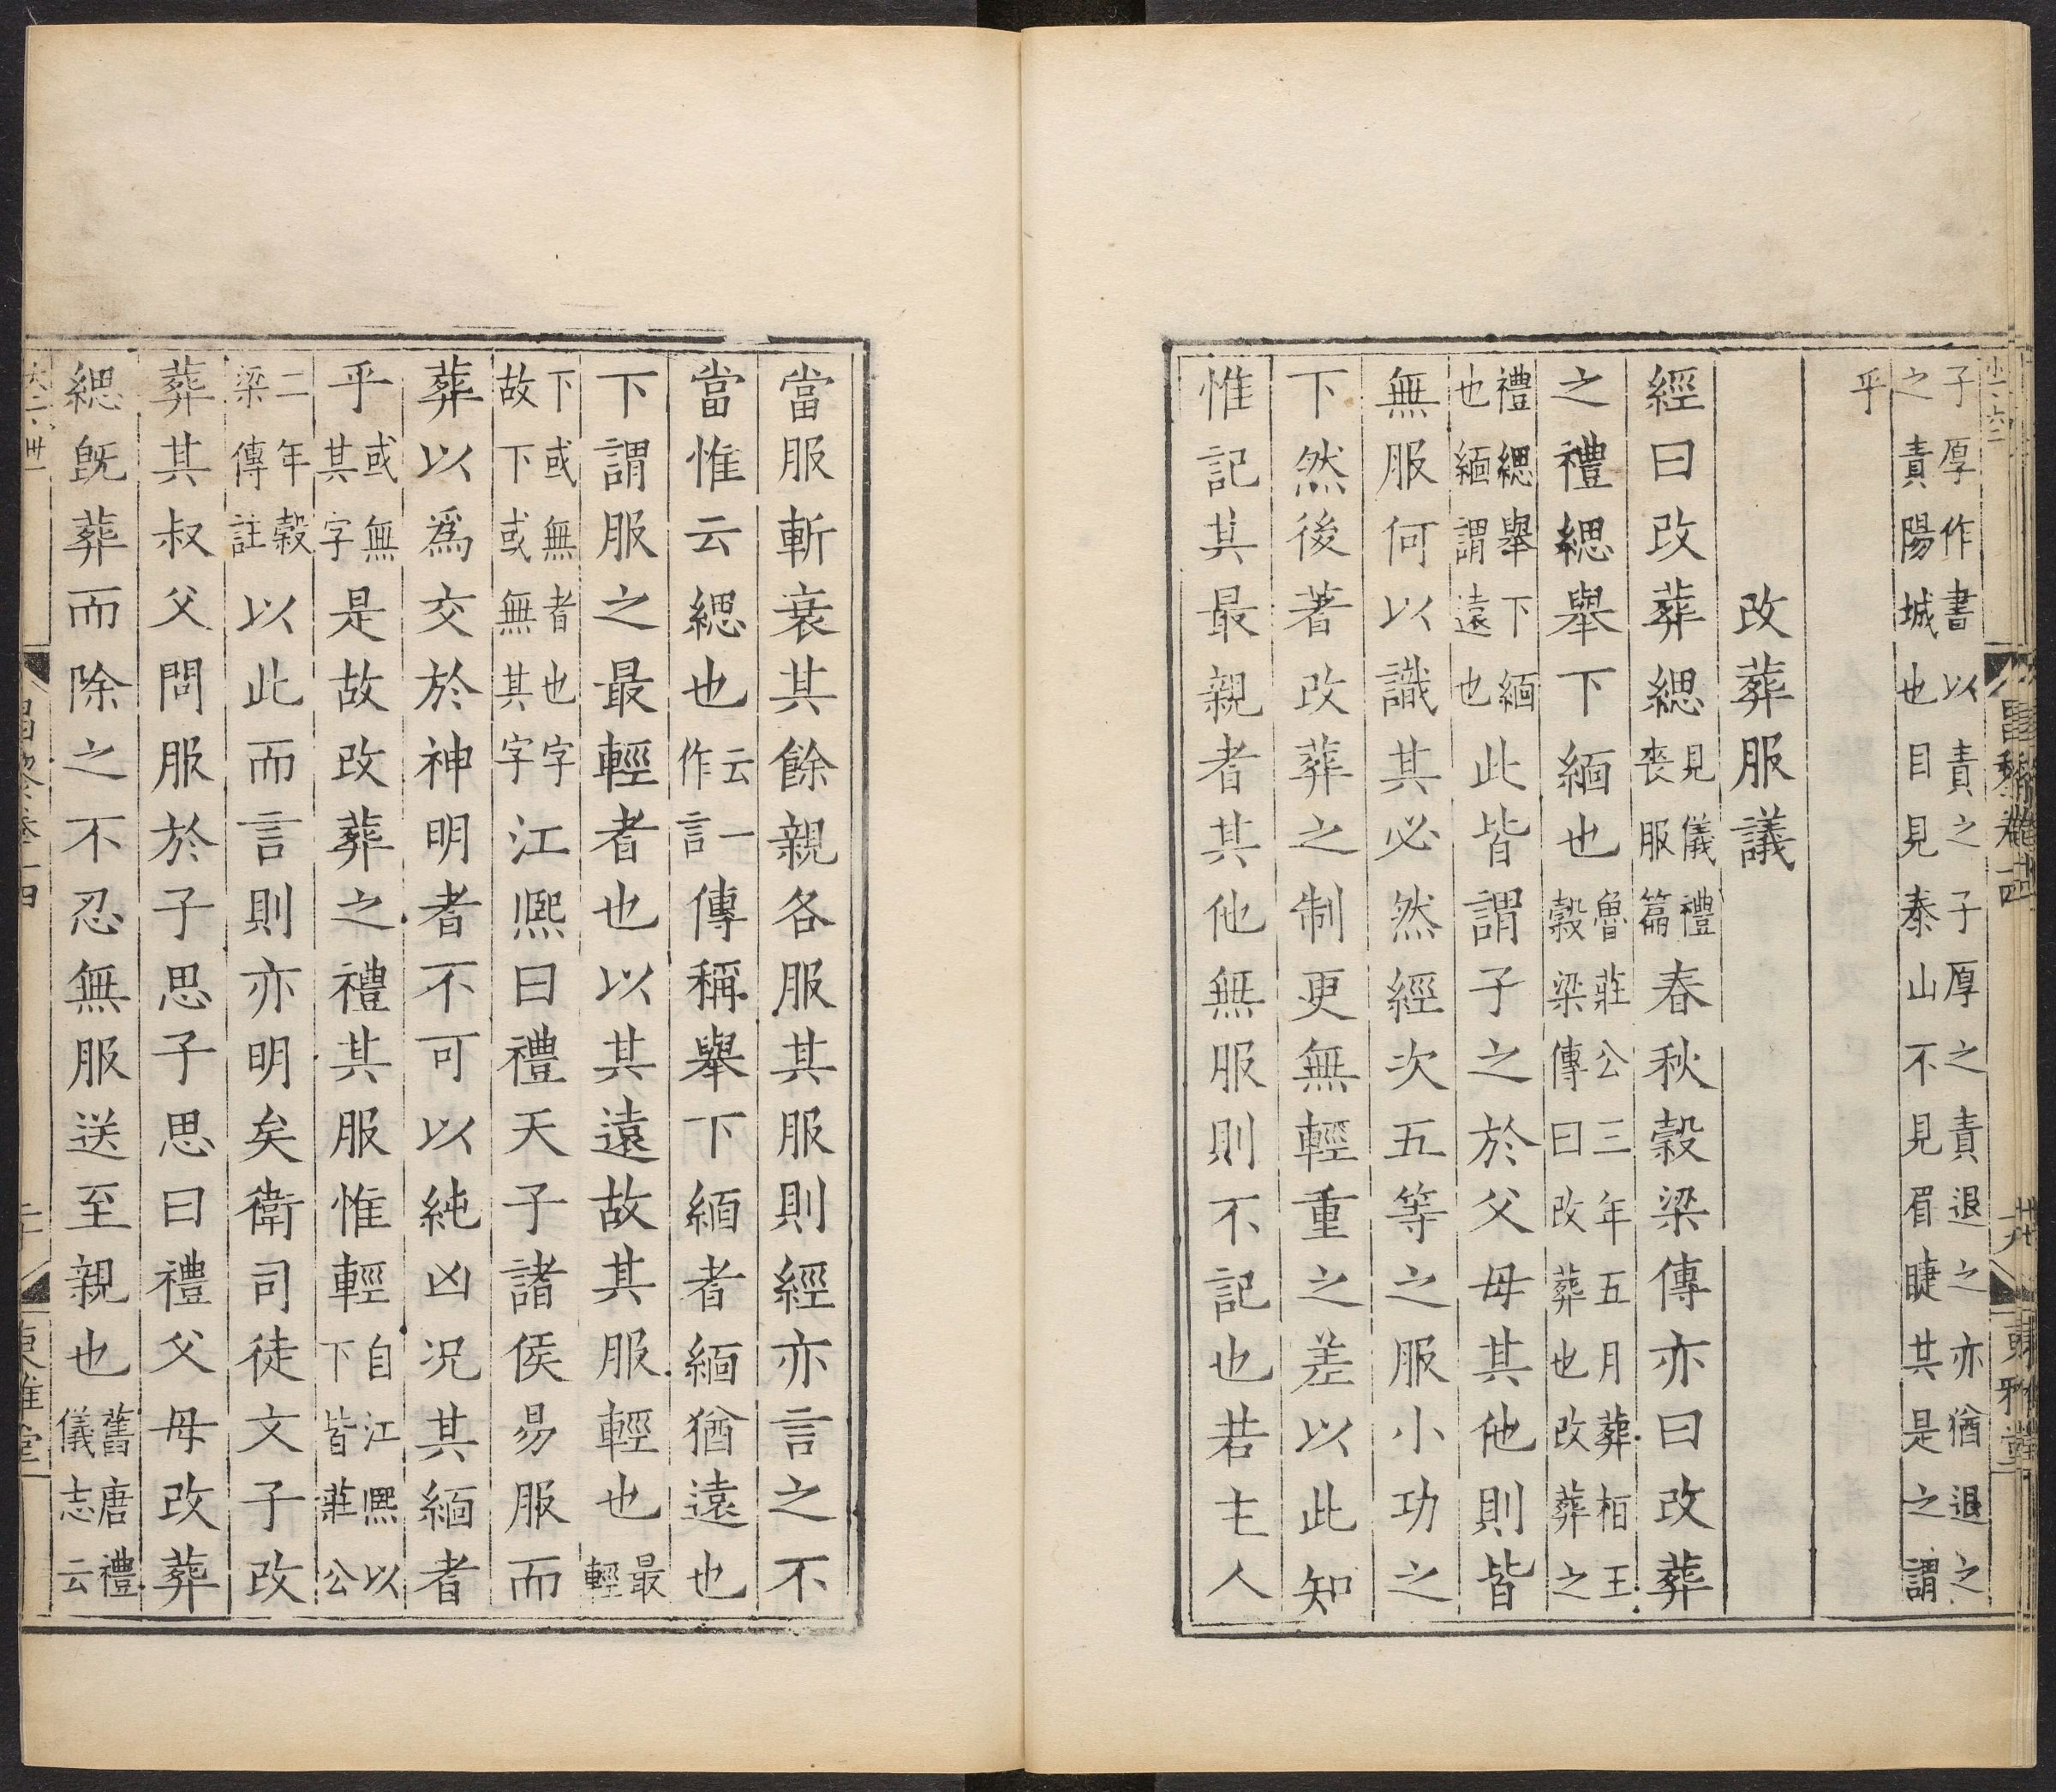 子厚作書以責之子厚之責退之亦猶退之
之責陽城也目見泰山不見眉睫其是之謂
乎
改葬服議
經曰改葬緦見儀禮喪服篇春秋穀梁傳亦曰改葬
之禮緦舉下緬也魯莊公三年五月葬桓王穀梁傳曰改葬也改葬之
禮緦舉下緬也緬謂遠也此皆謂子之於父母其他則皆
無服何以識其必然經次五等之服小功之
下然後著改葬之制更無輕重之差以此知
惟記其最親者其他無服則不記也若主人
當服斬衰其餘親各服其服則經亦言之不
當惟云緦也云一作言傳稱舉下緬者緬猶遠也
下謂服之最輕者也以其遠故其服輕也最輕
下或無者也字故下或無其字江熙曰禮天子諸侯易服而
葬以為交於神明者不可以純凶况其緬者
乎或無其字是故改葬之禮其服惟輕自江熙以下皆莊公
二年穀梁傳註以此而言則亦明矣衛司徒文子改
葬其叔父問服於子思子思曰禮父母改葬
緦旣葬而除之不忍無服送至親也舊唐禮儀志云